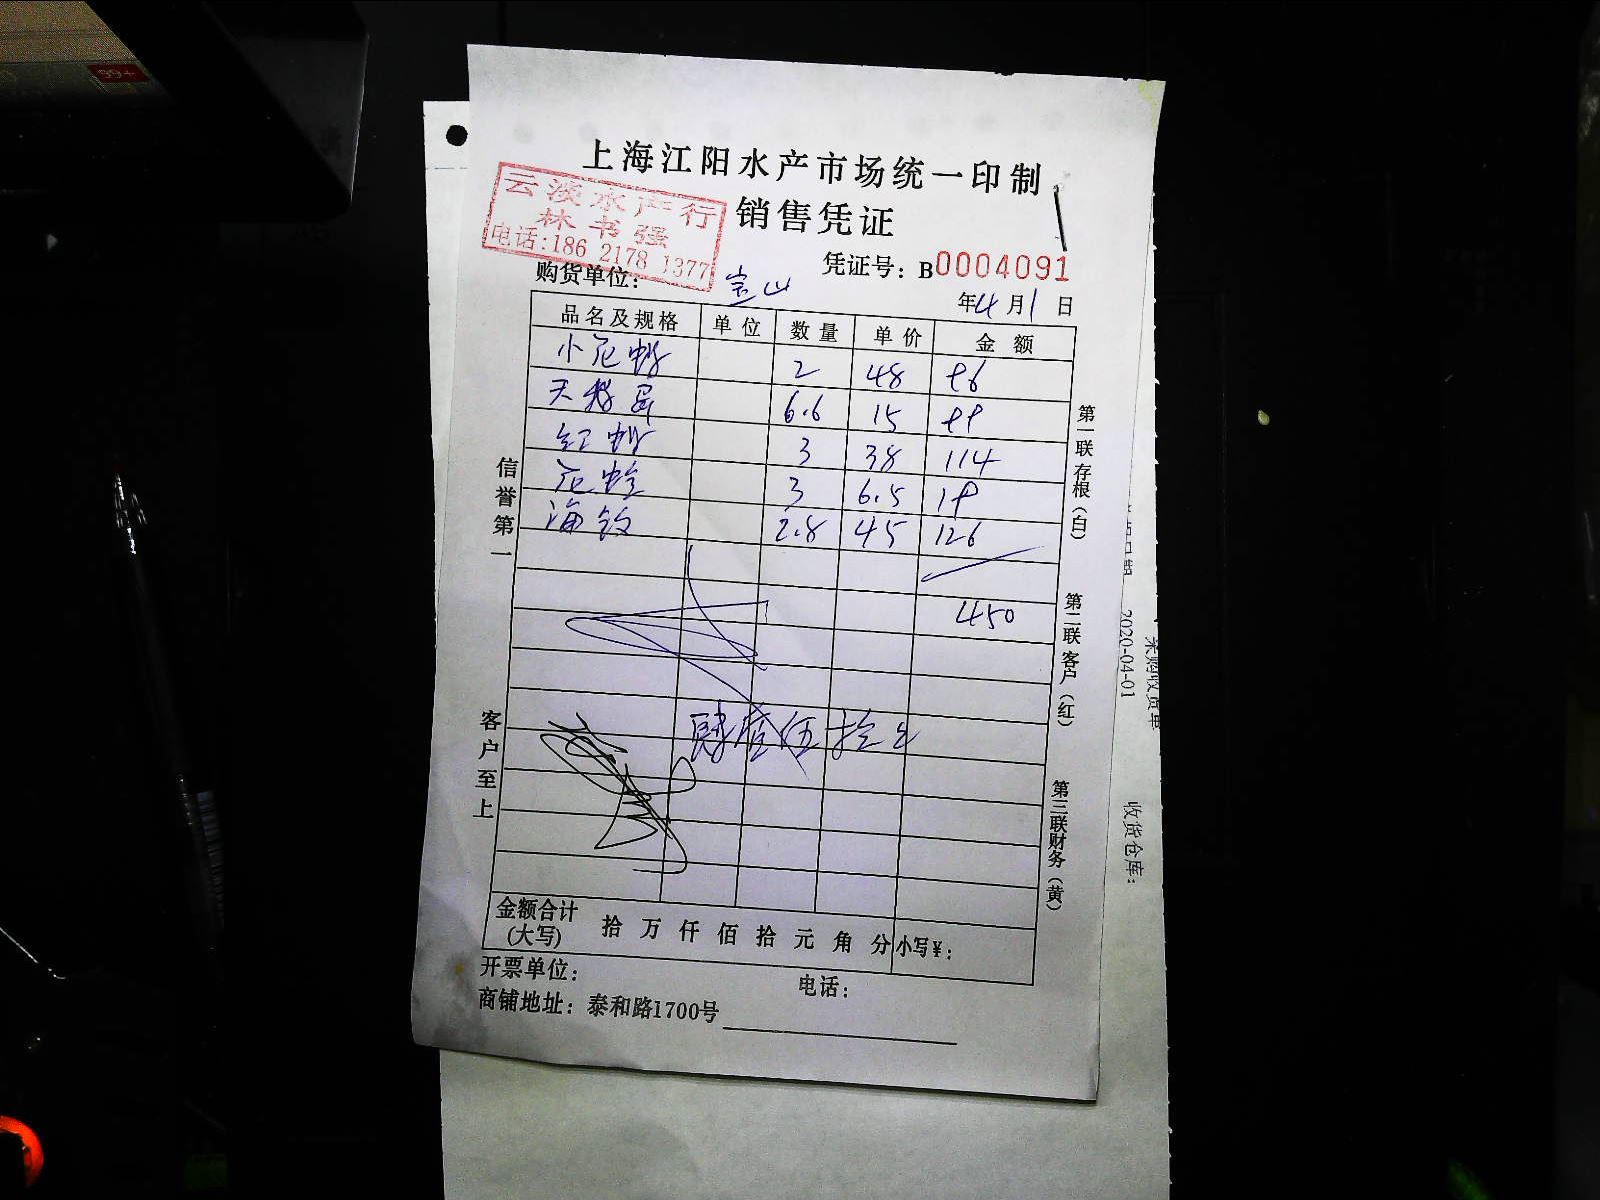 99+
上海江阳水产市场统一印制
销售凭证
云淡水产行
林书强
电话:186 2178 1377
凭证号：B0004091
购货单位：宝山
年4月1日
品名及规格 单位 数量 单价 金额
小花蛤 2 48 96
6.6 15 99
红 3 38 114
花蛤 3 6.5 19
海 2.8 45 126
450
肆壹伍拾元
金额合计(大写) 拾万仟佰拾元角分 小写¥：
开票单位： 电话：
商铺地址：泰和路1700号
信誉第一
客户至上
第一联存根（白）
第二联客户（红）
第三联财务（黄）
采购收货单
2020-04-01
收货仓库：